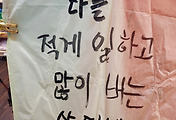 다들
적게 일하고
많이 버는